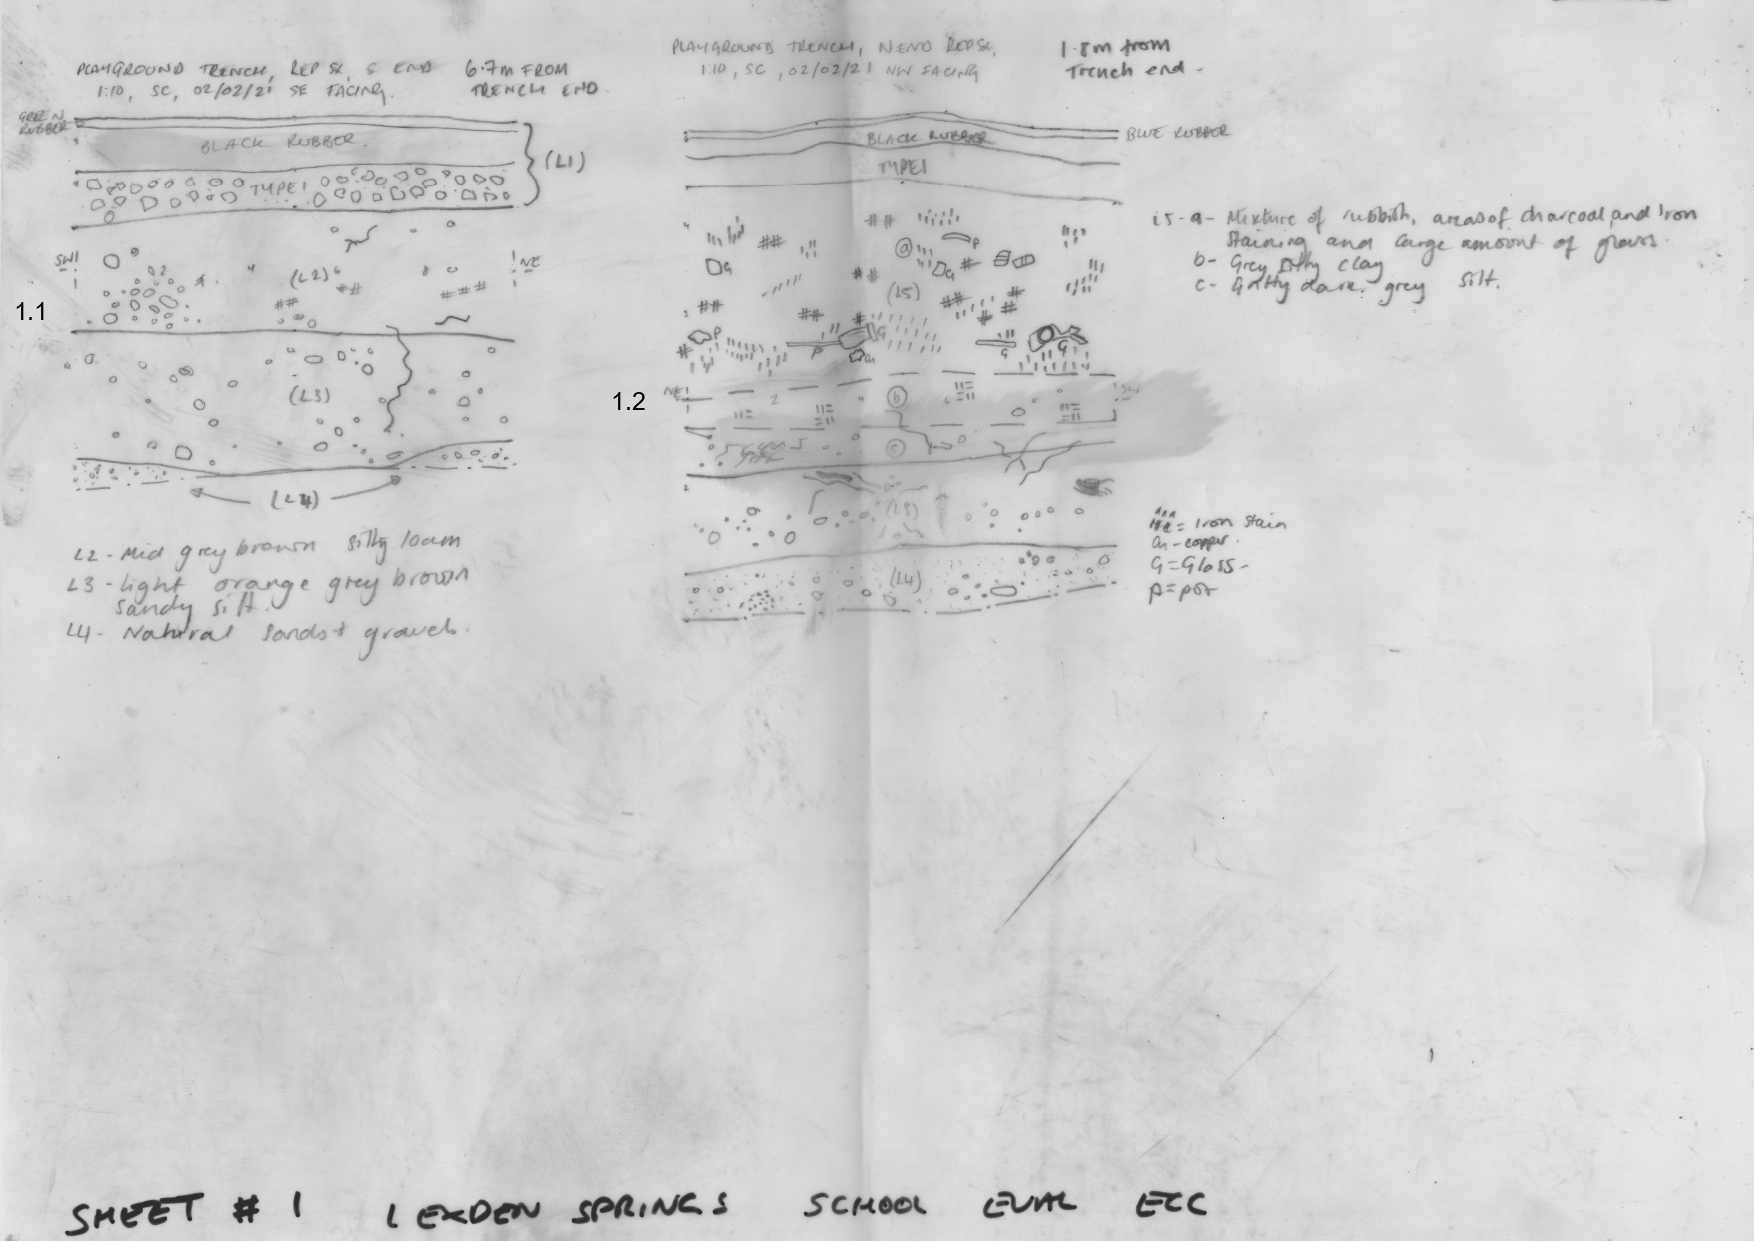 PLAYGROUND TRENCH, REP SX, S END 6.7m FROM
1:10, SC, 02/02/21 SE FACING. TRENCH END.
GREEN
RUBBER
BLACK RUBBER.
(L1)
TYPE 1
SW
NE
(L2)
1.1
(L3)
(L4)
L2 - Mid grey brown silty loam
L3 - light orange grey brown
sandy silt.
L4 - Natural sands + gravels.
PLAYGROUND TRENCH, N END REP SX, 1.8m from
1:10, SC, 02/02/21 NW FACING Trench end -
BLACK RUBBER
BLUE RUBBER
TYPE 1
(a)
P
G
G
(L5)
P
G
P
Cu
G
G
NE
SW
1.2
(b)
(c)
(L3)
(L4)
L5 - a - Mixture of rubbish, areas of charcoal, and iron
staining and large amount of glass.
b - Grey silty clay
c - Gritty dark grey silt.
= Iron stain
Cu - copper.
G = Glass -
P = pot
SHEET # 1 LEXDEN SPRINGS SCHOOL EVAL ECC